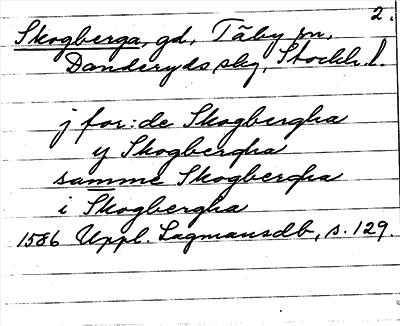 2.
Skogberga, gd, Täby sn,
Danderyds skg, Stockh. l.
j for:de Skogbergha
y Skogbergha
samme Skogbergha
i Skogbergha
1586 Uppl. Lagmansdb, s. 129.